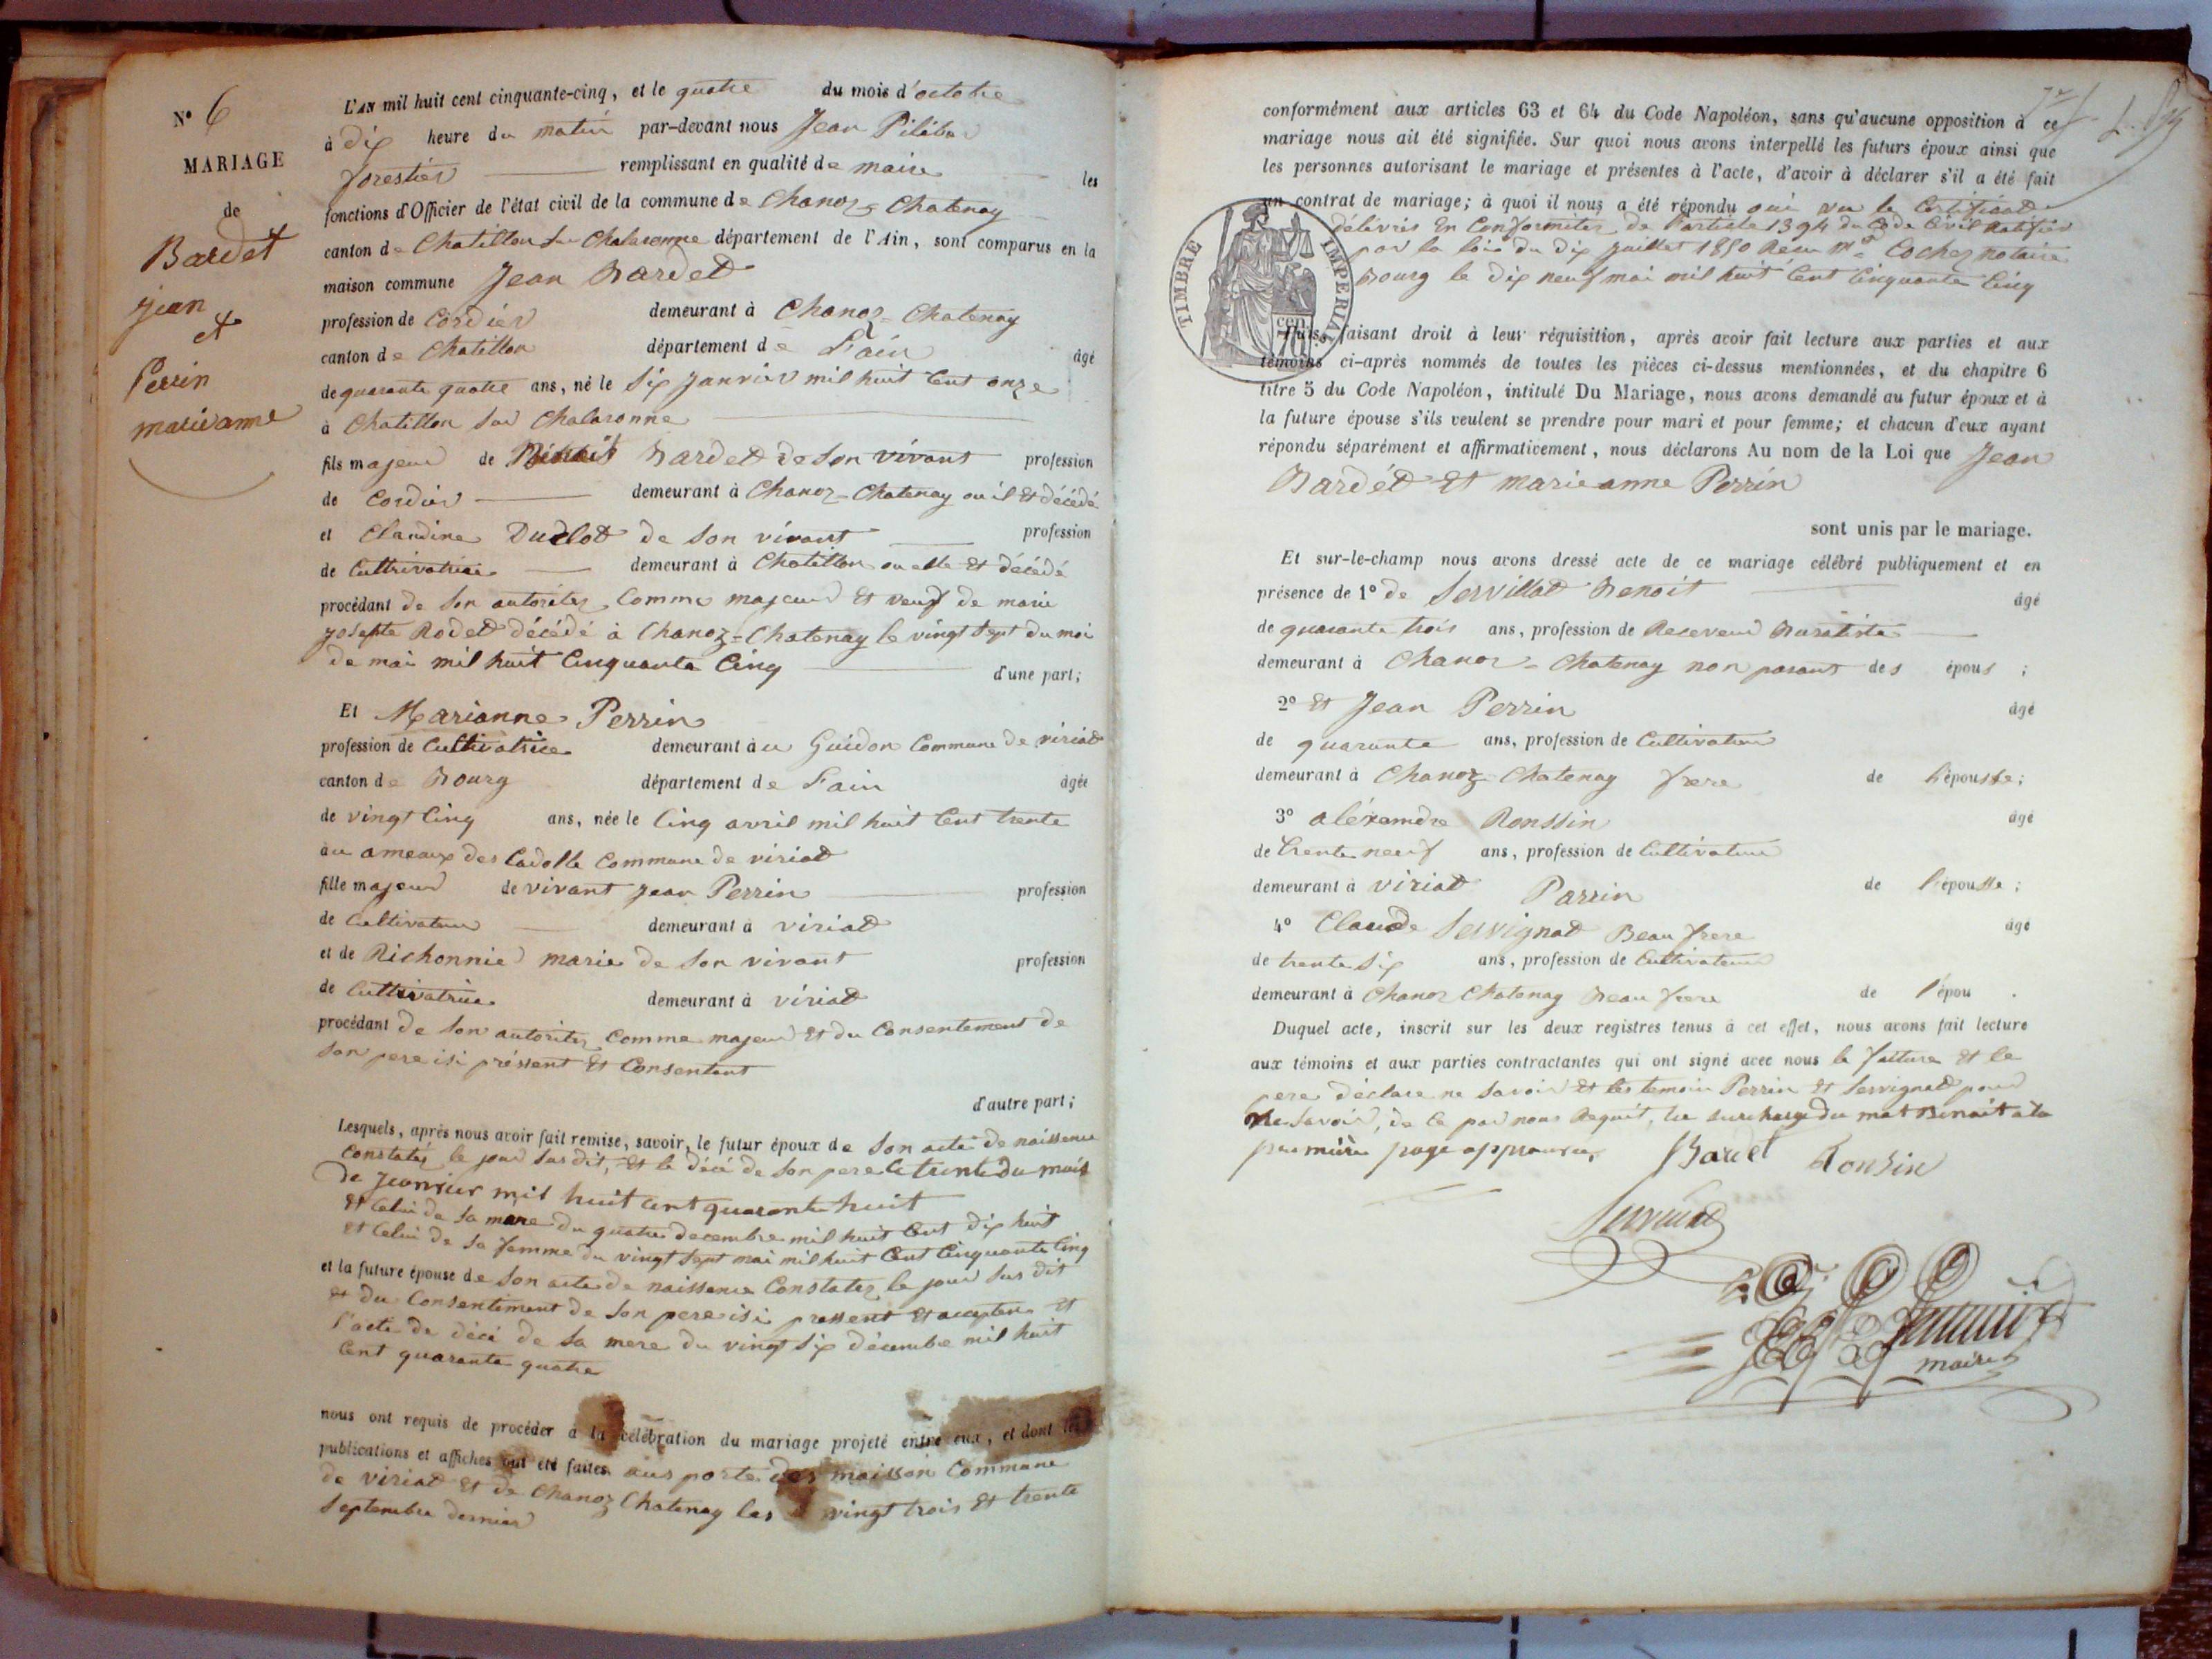 N° 6
MARIAGE
de
Bardet
jean
et
Perrin
marieanne
L'AN mil huit cent cinquante-cinq, et le quatre du mois d'octobre
à dix heure du matin par-devant nous Jean
forestier remplissant en qualité de maire les
fonctions d'Officier de l'état civil de la commune de Chanoz-Chatenay
canton de Chatillon sur Chalaronne département de l'Ain, sont comparus en la
maison commune Jean Bardet
profession de Cordier demeurant à Chanoz-Chatenay
canton de Chatillon département de L'ain âgé
de quarante quatre ans, né le six janvier mil huit cent onze
à Chatillon sur Chalaronne
fils majeur de Benoit Bardet de son vivant profession
de Cordier demeurant à Chanoz-Chatenay ou il et décédé
et Claudine Duclot de son vivant profession
de Cultivatrice demeurant à Chatillon ou elle et décédé
procédant de son autorités comme majeur et veuf de marie
josephte Rodet décédé à Chanoz-Chatenay le vingt sept du moi
de mai mil huit Cinquante Cinq d'une part;
Et Marianne Perrin
profession de Cultivatrice demeurant à u Guidon Commune de viriat
canton de Bourg département de L'ain âgée
de vingt Cinq ans, née le Cinq avril mil huit Cent trente
au ameaux des Cadolle Commune de viriat
fille majeur de vivant Jean Perrin profession
de Cultivateur demeurant à viriat
et de Richonnier marie de son vivant profession
de Cultivatrice demeurant à viriat
procédant de son autorités comme majeur et du Consentement de
son pere isi présent et Consentant
d'autre part;
Lesquels, après nous avoir fait remise, savoir, le futur époux de son acte de naissence
Constatés le jour sus dit, et le décé de son pere le trente du mois
de Janvier mil huit cent quarante huit
et Celui de sa mere du quatre decembre mil huit Cent dix huit
et Celui de sa femme du vingt sept mai mil huit Cent Cinquante Cinq
et la future épouse de son acte de naissence Constatés le jour sus dit
et du Consentiment de son pere isi present et accepten et
l'acte de décé de sa mere du vingt six décembre mil huit
Cent quarante quatre
nous ont requis de procéder à la célébration du mariage projeté entre eux, et dont les
publications et affiches ont été faites aus porte des maison Commune
de viriat et de Chanoz Chatenay les vingt trois et trente
septembre dernier
conformément aux articles 63 et 64 du Code Napoléon, sans qu'aucune opposition à ce
mariage nous ait été signifiée. Sur quoi nous avons interpellé les futurs époux ainsi que
les personnes autorisant le mariage et présentes à l'acte, d'avoir à déclarer s'il a été fait
un contrat de mariage; à quoi il nous a été répondu oui vu le Certificat
délivrés en Conformités de l'article 1394 du Code Civil
par la loi du dix juillet 1850 Recu Me Cochez notaire
Bourg le dix neuf mai mil huit Cent Cinquante Cinq
TIMBRE IMPERIAL
cen
70
Puis, faisant droit à leur réquisition, après avoir fait lecture aux parties et aux
témoins ci-après nommés de toutes les pièces ci-dessus mentionnées, et du chapitre 6
titre 5 du Code Napoléon, intitulé Du Mariage, nous avons demandé au futur époux et à
la future épouse s'ils veulent se prendre pour mari et pour femme; et chacun d'eux ayant
répondu séparément et affirmativement, nous déclarons Au nom de la Loi que Jean
Bardét et marieanne Perrin
sont unis par le mariage.
Et sur-le-champ nous avons dressé acte de ce mariage célébré publiquement et en
présence de 1° de Servillat Benoit âgé
de quarante trois ans, profession de Receveur Buraliste
demeurant à Chanoz-Chatenay non parant des épous ;
2° et Jean Perrin âgé
de quarante ans, profession de Cultivateur
demeurant à Chanoz-Chatenay frere de l'épousse;
3° aléxamdre Ronssin âgé
de trente neuf ans, profession de Cultivateur
demeurant à viriat Parrin de l'épousse;
4° Claude Servignat Beau frere âgé
de trente six ans, profession de Cultivateur
demeurant à Chanoz Chatenay Beau frere de l'épou .
Duquel acte, inscrit sur les deux registres tenus à cet effet, nous avons fait lecture
aux témoins et aux parties contractantes qui ont signé avec nous la future et le
pere déclare ne savoir et les temoin Perrin et Servignat pour
ne savoir, de ce par nous Requit, la surcharge du mot Benoit à la
premiére page approuvé. Bardet Ronsin
Servillat
maire